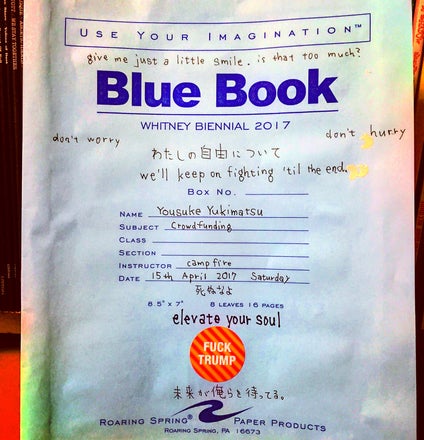 USE YOUR IMAGINATION™
give me just a little smile. is that too much?
Blue Book
WHITNEY BIENNIAL 2017
don't worry
don't hurry
わたしの自由について
we'll keep on fighting 'til the end.
BOX NO.
NAME Yousuke Yukimatsu
SUBJECT Crowdfunding
CLASS
SECTION
INSTRUCTOR campfire
DATE 15th April 2017 Saturday
死ぬなよ
8.5" x 7" 8 LEAVES 16 PAGES
elevate your soul
FUCK
TRUMP
未来が俺らを待ってる。
ROARING SPRING® PAPER PRODUCTS
ROARING SPRING, PA 16673